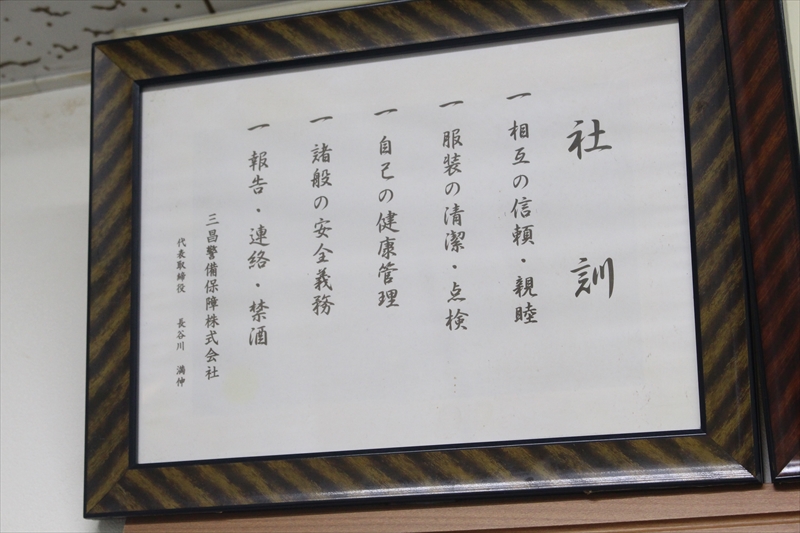 社訓
一 相互の信頼・親睦
一 服装の清潔・点検
一 自己の健康管理
一 諸般の安全義務
一 報告・連絡・禁酒
三昌警備保障株式会社
代表取締役 長谷川 満伸